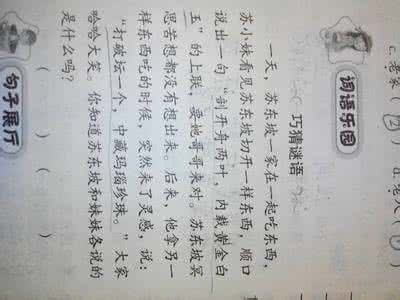 c.老家( ) d.老人( )
词语乐园
巧猜谜语
一天，苏东坡一家在一起吃东西，
苏小妹看见苏东坡切开一样东西，顺口
说出一句“剖开舟两叶，内载黄金白
玉”的上联，要她哥哥来对。苏东坡冥
思苦想都没有想出来。后来，他拿另一
样东西吃的时候，突然来了灵感，说：
“打破坛一个，中藏玛瑙珍珠。”大家
哈哈大笑。你知道苏东坡和妹妹各说的
是什么吗？
( ) ( )
句子展厅